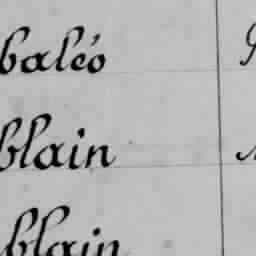 baléo
blain
blain